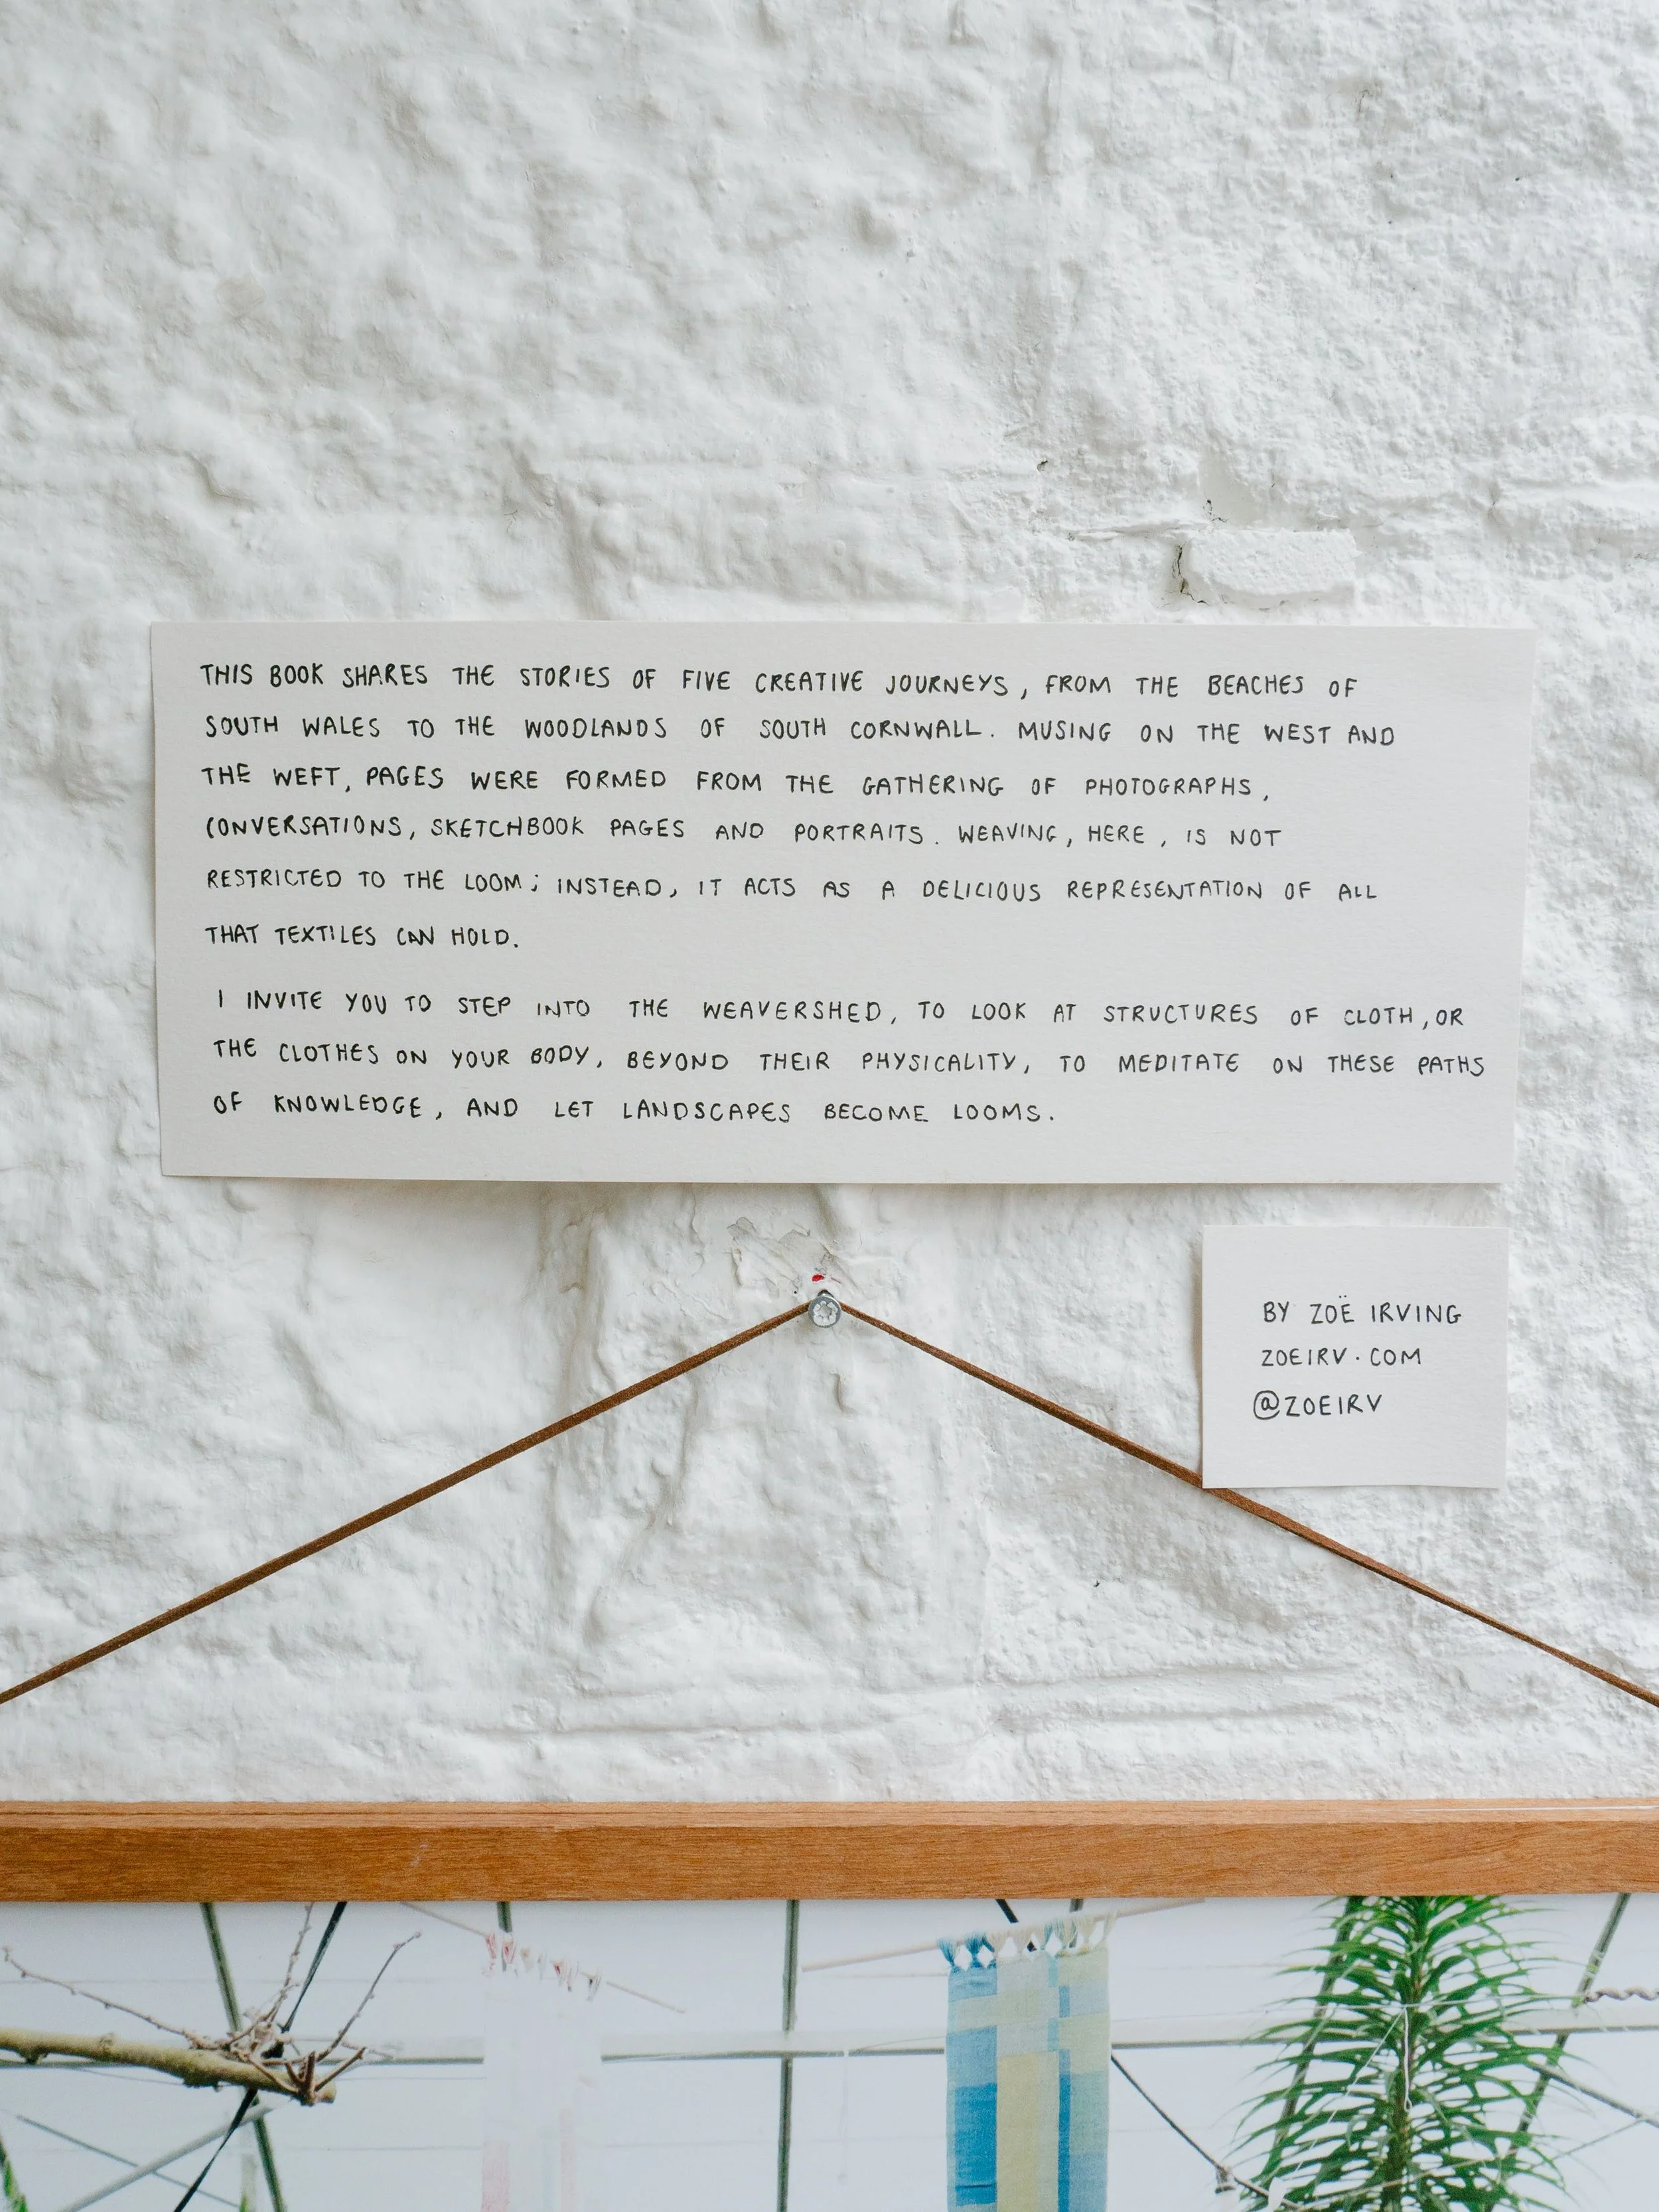 THIS BOOK SHARES THE STORIES OF FIVE CREATIVE JOURNEYS, FROM THE BEACHES OF
SOUTH WALES TO THE WOODLANDS OF SOUTH CORNWALL. MUSING ON THE WEST AND
THE WEFT, PAGES WERE FORMED FROM THE GATHERING OF PHOTOGRAPHS,
CONVERSATIONS, SKETCHBOOK PAGES AND PORTRAITS. WEAVING, HERE, IS NOT
RESTRICTED TO THE LOOM; INSTEAD, IT ACTS AS A DELICIOUS REPRESENTATION OF ALL
THAT TEXTILES CAN HOLD.
I INVITE YOU TO STEP INTO THE WEAVERSHED, TO LOOK AT STRUCTURES OF CLOTH, OR
THE CLOTHES ON YOUR BODY, BEYOND THEIR PHYSICALITY, TO MEDITATE ON THESE PATHS
OF KNOWLEDGE, AND LET LANDSCAPES BECOME LOOMS.
BY ZOË IRVING
ZOEIRV.COM
@ZOEIRV